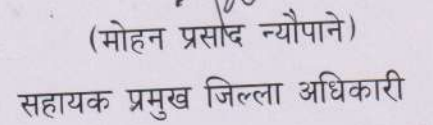 (मोहन प्रसाद न्यौपाने)
सहायक प्रमुख जिल्ला अधिकारी